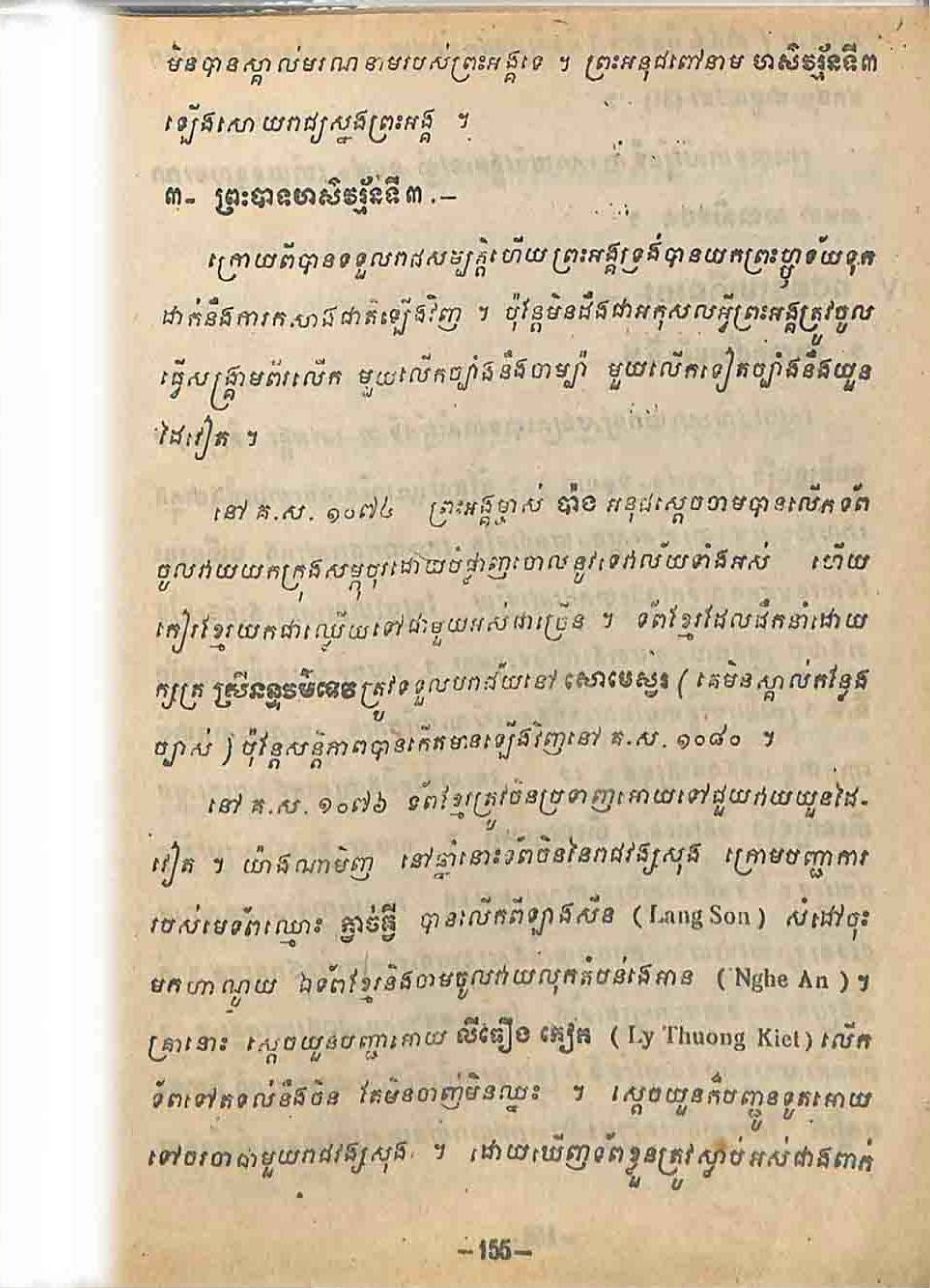 មិនបានស្គាល់មរណនាមរបស់ព្រះអង្គទេ ។ ព្រះអនុជពៅនាម ហសិវរ្ម័នទី៣
ឡើងសោយរាជ្យស្នងព្រះអង្គ ។
៣- ព្រះបាទហសិវរ្ម័នទី៣ .–
ក្រោយពីបានទទួលរាជសម្បត្តិហើយ ព្រះអង្គទ្រង់បានយកព្រះហ្ឫទ័យទុក
ដាក់នឹងការកសាងជាតិឡើងវិញ ។ ប៉ុន្តែមិនដឹងជាអកុសលអ្វីព្រះអង្គត្រូវចូល
ធ្វើសង្គ្រាមពីរលើក មួយលើកច្បាំងនឹងចាម្ប៉ា មួយលើកទៀតច្បាំងនឹងយួន
ដៃវៀត ។
នៅ គ.ស. ១០៧៤ ព្រះអង្គម្ចាស់ ប៉ាង អនុជស្តេចចាមបានលើកទ័ព
ចូលវាយយកក្រុងសម្ភុបុរដោយបំផ្លាញចោលនូវទេវាល័យទាំងអស់ ហើយ
កៀរខ្មែរយកជាឈ្លើយទៅជាមួយអស់ជាច្រើន ។ ទ័ពខ្មែរដែលដឹកនាំដោយ
ក្សត្រ ស្រីនន្ទវម៌ទេវ ត្រូវទទួលបរាជ័យនៅ សោមេស្វរ ( គេមិនស្គាល់កន្លែង
ច្បាស់ ) ប៉ុន្តែសន្តិភាពបានកើតមានឡើងវិញនៅ គ.ស. ១០៨០ ។
នៅ គ.ស. ១០៧៦ ទ័ពខ្មែរត្រូវចិនប្រទាញអោយទៅជួយវាយយួនដៃ-
វៀត ។ យ៉ាងណាមិញ នៅឆ្នាំនោះទ័ពចិននៃរាជវង្សសុង ក្រោមបញ្ជាការ
របស់មេទ័ពឈ្មោះ ក្វាច់ធ្វី បានលើកពីឡាងស័ន ( Lang Son ) សំដៅចុះ
មកហាណូយ ឯទ័ពខ្មែរនិងចាមចូលវាយលុកតំបន់ងេអាន ( Nghe An ) ។
គ្រានោះ ស្តេចយួនបញ្ជាអោយ លីធឿង គៀត ( Ly Thuong Kiet ) លើក
ទ័ពទៅតទល់នឹងចិន តែមិនចាញ់មិនឈ្នះ ។ ស្តេចយួនក៏បញ្ជូនទូតអោយ
ទៅចរចាជាមួយរាជវង្សសុង ។ ដោយឃើញទ័ពខ្លួនត្រូវស្លាប់អស់ជាងពាក់
–155–